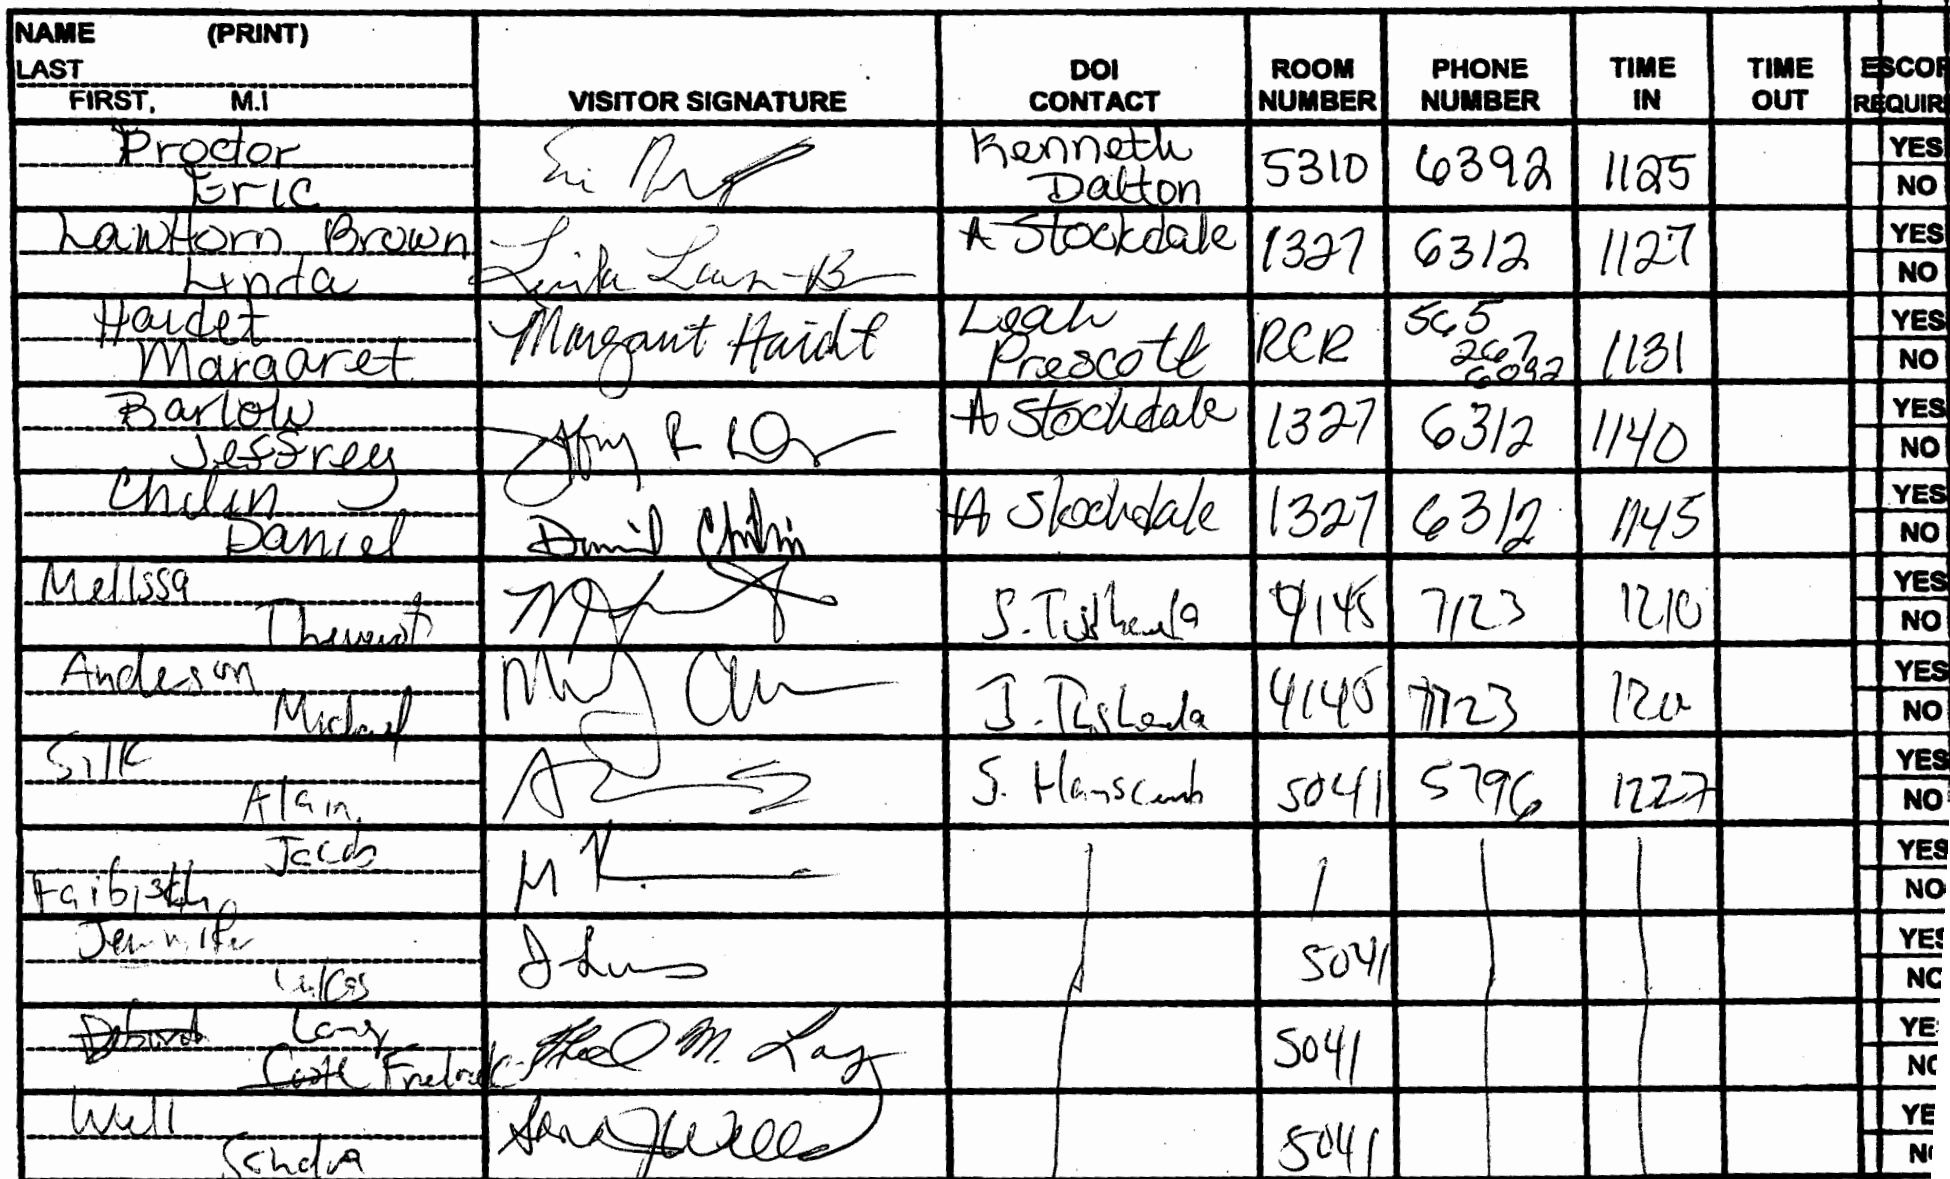 NAME (PRINT)
LAST
FIRST, M.I
VISITOR SIGNATURE
DOI
CONTACT
ROOM
NUMBER
PHONE
NUMBER
TIME
IN
TIME
OUT
ESCOR
REQUIR
Proctor
Eric
Kenneth
Dalton
5310 6392 1125
YES
NO
LawHorn Brown
Lynda
A Stockdale
1327 6312 1127
YES
NO
Haidet
Margaret
Margaret Haidet
Leah
Prescott
RCR
565
267
6092
1131
YES
NO
Barlow
Jeffrey
A Stockdale
1327 6312 1140
YES
NO
Chilin
Daniel
Daniel Chilin
A Stockdale
1327 6312 1145
YES
NO
Melissa
Thevenot
4145 7123 1210
YES
NO
Anderson
Michael
4145 7123
YES
NO
Silk
Alain
S. Hanscomb
5041 5796 1227
YES
NO
Jacob
YES
NO
Jennifer
Lukas
5041
YES
NO
Lang
Fredrick
M. Lang
5041
YE
NO
Well
Sandra
5041
YE
N